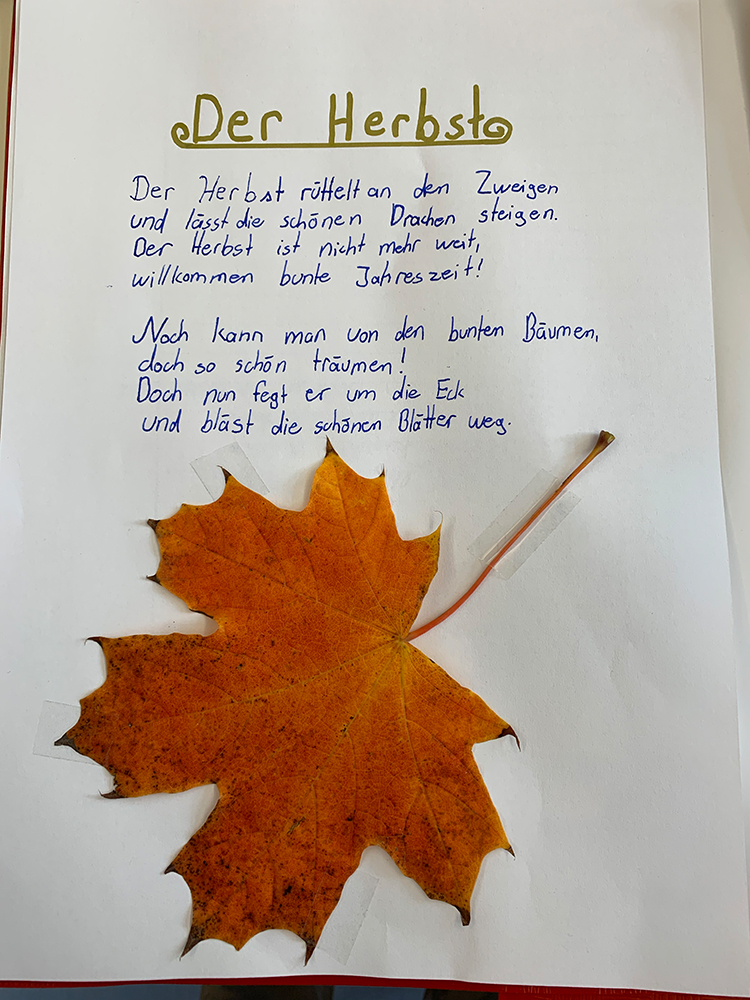 Der Herbst
Der Herbst rüttelt an den Zweigen
und lässt die schönen Drachen steigen.
Der Herbst ist nicht mehr weit,
willkommen bunte Jahreszeit!
Noch kann man von den bunten Bäumen,
doch so schön träumen!
Doch nun fegt er um die Eck
und bläst die schönen Blätter weg.